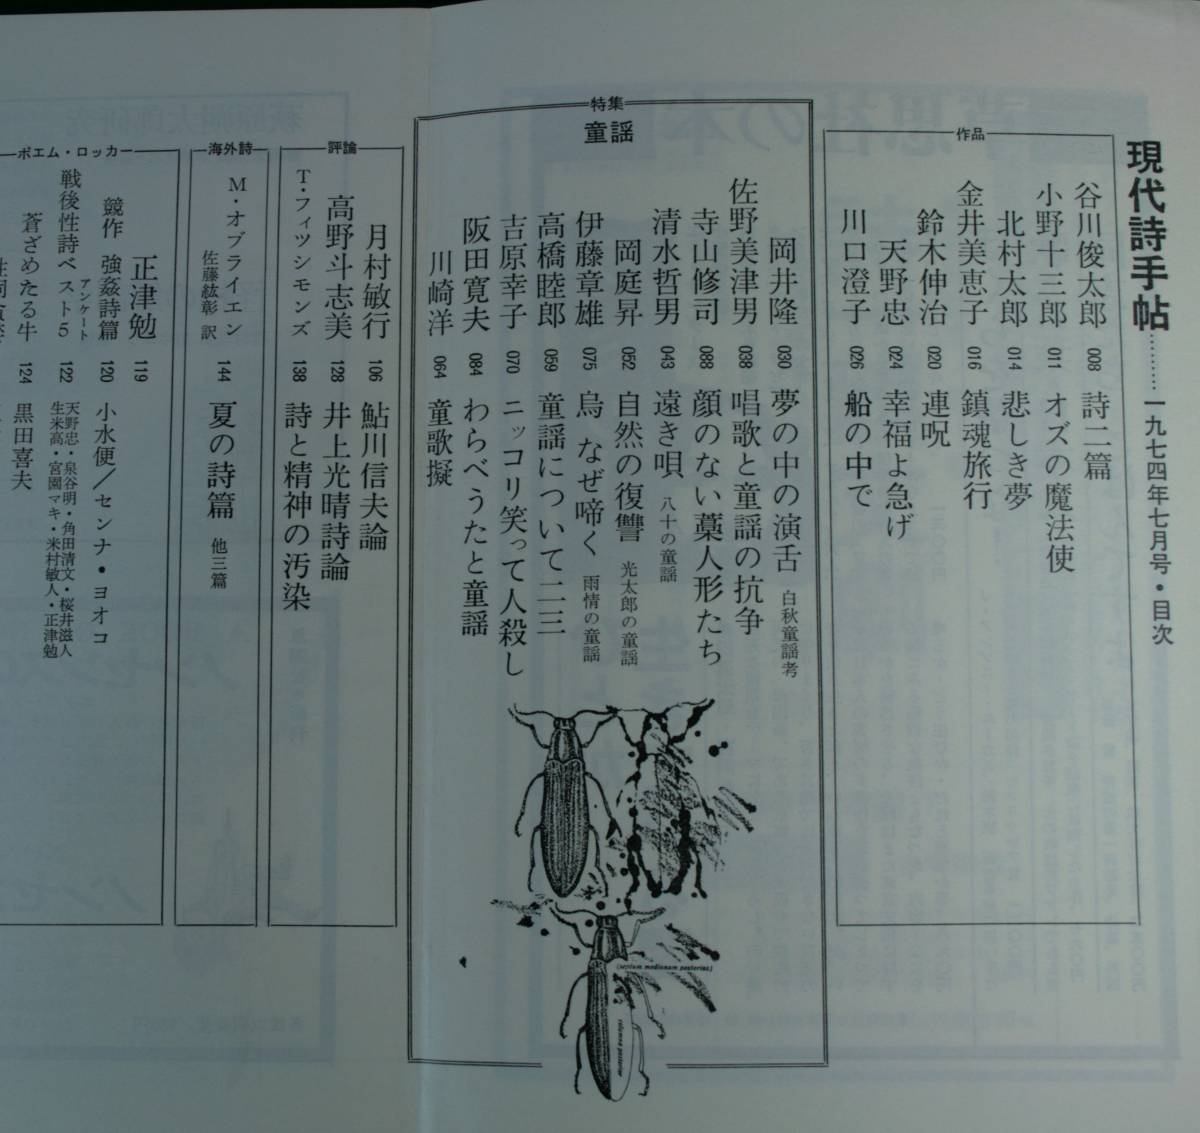 現代詩手帖………一九七四年七月号・目次
作品
谷川俊太郎 008 詩二篇
小野十三郎 011 オズの魔法使
北村太郎 014 悲しき夢
金井美恵子 016 鎮魂旅行
鈴木伸治 020 連呪
天野忠 024 幸福よ急げ
川口澄子 026 船の中で
特集
童謡
岡井隆 030 夢の中の演舌 白秋童謡考
佐野美津男 038 唱歌と童謡の抗争
寺山修司 088 顔のない藁人形たち
清水哲男 043 遠き唄 八十の童謡
岡庭昇 052 自然の復讐 光太郎の童謡
伊藤章雄 075 烏 なぜ啼く 雨情の童謡
高橋睦郎 059 童謡について二三
吉原幸子 070 ニッコリ笑って人殺し
阪田寛夫 084 わらべうたと童謡
川崎洋 064 童歌擬
(septum medianum posterius)
columna posterior
評論
月村敏行 106 鮎川信夫論
高野斗志美 128 井上光晴詩論
T・フィツシモンズ 138 詩と精神の汚染
海外詩
M・オブライエン 佐藤紘彰 訳 144 夏の詩篇 他三篇
ポエム・ロッカー
正津勉 119
競作 強姦詩篇 120 小水便／センナ・ヨオコ
戦後性詩ベスト5 アンケート 122 天野忠・泉谷明・角田清文・桜井滋人
生米高・宮園マキ・米村敏人・正津勉
蒼ざめたる牛 124 黒田喜夫